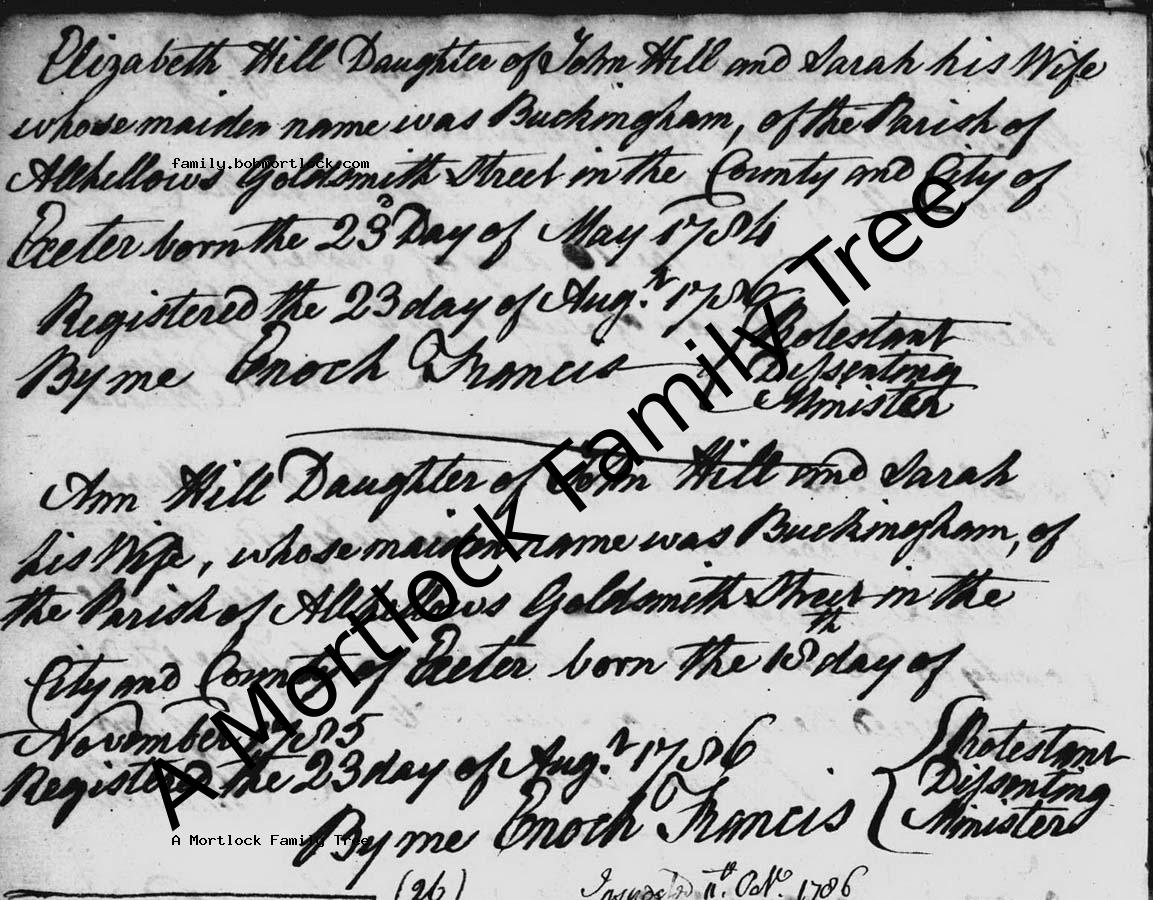 Elizabeth Hill Daughter of John Hill and Sarah his Wife
whose maiden name was Buckingham, of the Parish of
family.bobmortlock.com
Allhellows Goldsmith Street in the County and City of
Exeter born the 23d Day of May 1784
Registered the 23 day of Augt. 1786
By me Enoch Francis Protestant
Dissenting
Minister
A Mortlock Family Tree
Ann Hill Daughter of John Hill and Sarah
his Wife, whose maiden name was Buckingham, of
the Parish of Allhellows Goldsmith Street in the
City and County of Exeter born the 18th day of
November 1785
Registered the 23 day of Augt. 1786
By me Enoch Francis
Protestant
Dissenting
Minister
A Mortlock Family Tree
(26) 11th. Octr. 1786